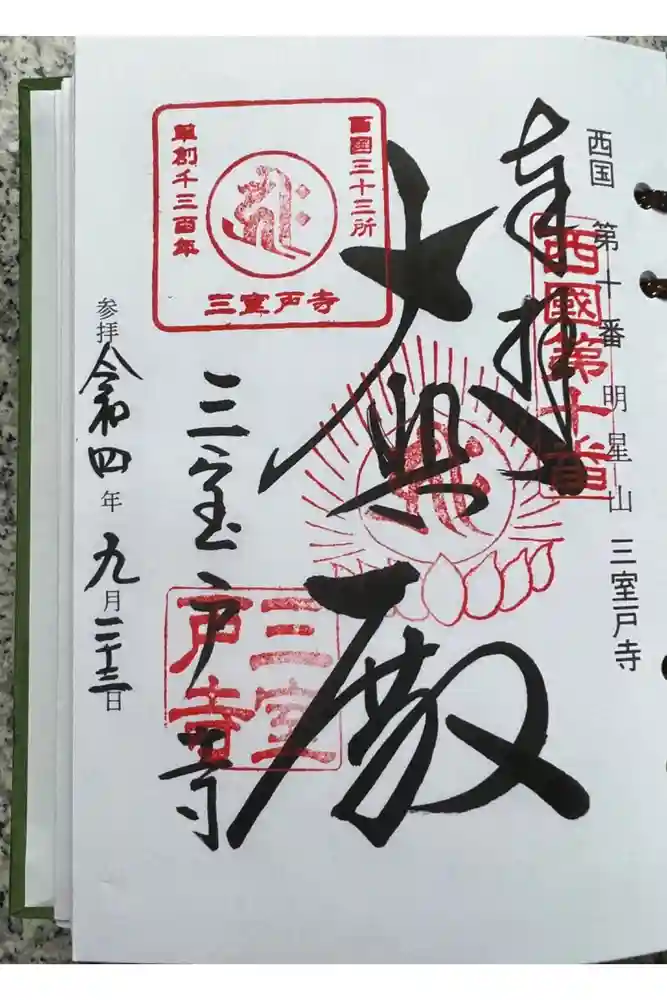 西国 第十番 明星山 三室戸寺
奉拝
西國第十番
大悲殿
西国三十三所
草創千三百年
三室戸寺
三室戸寺
三室戸寺
参拝 令和四年九月二十三日